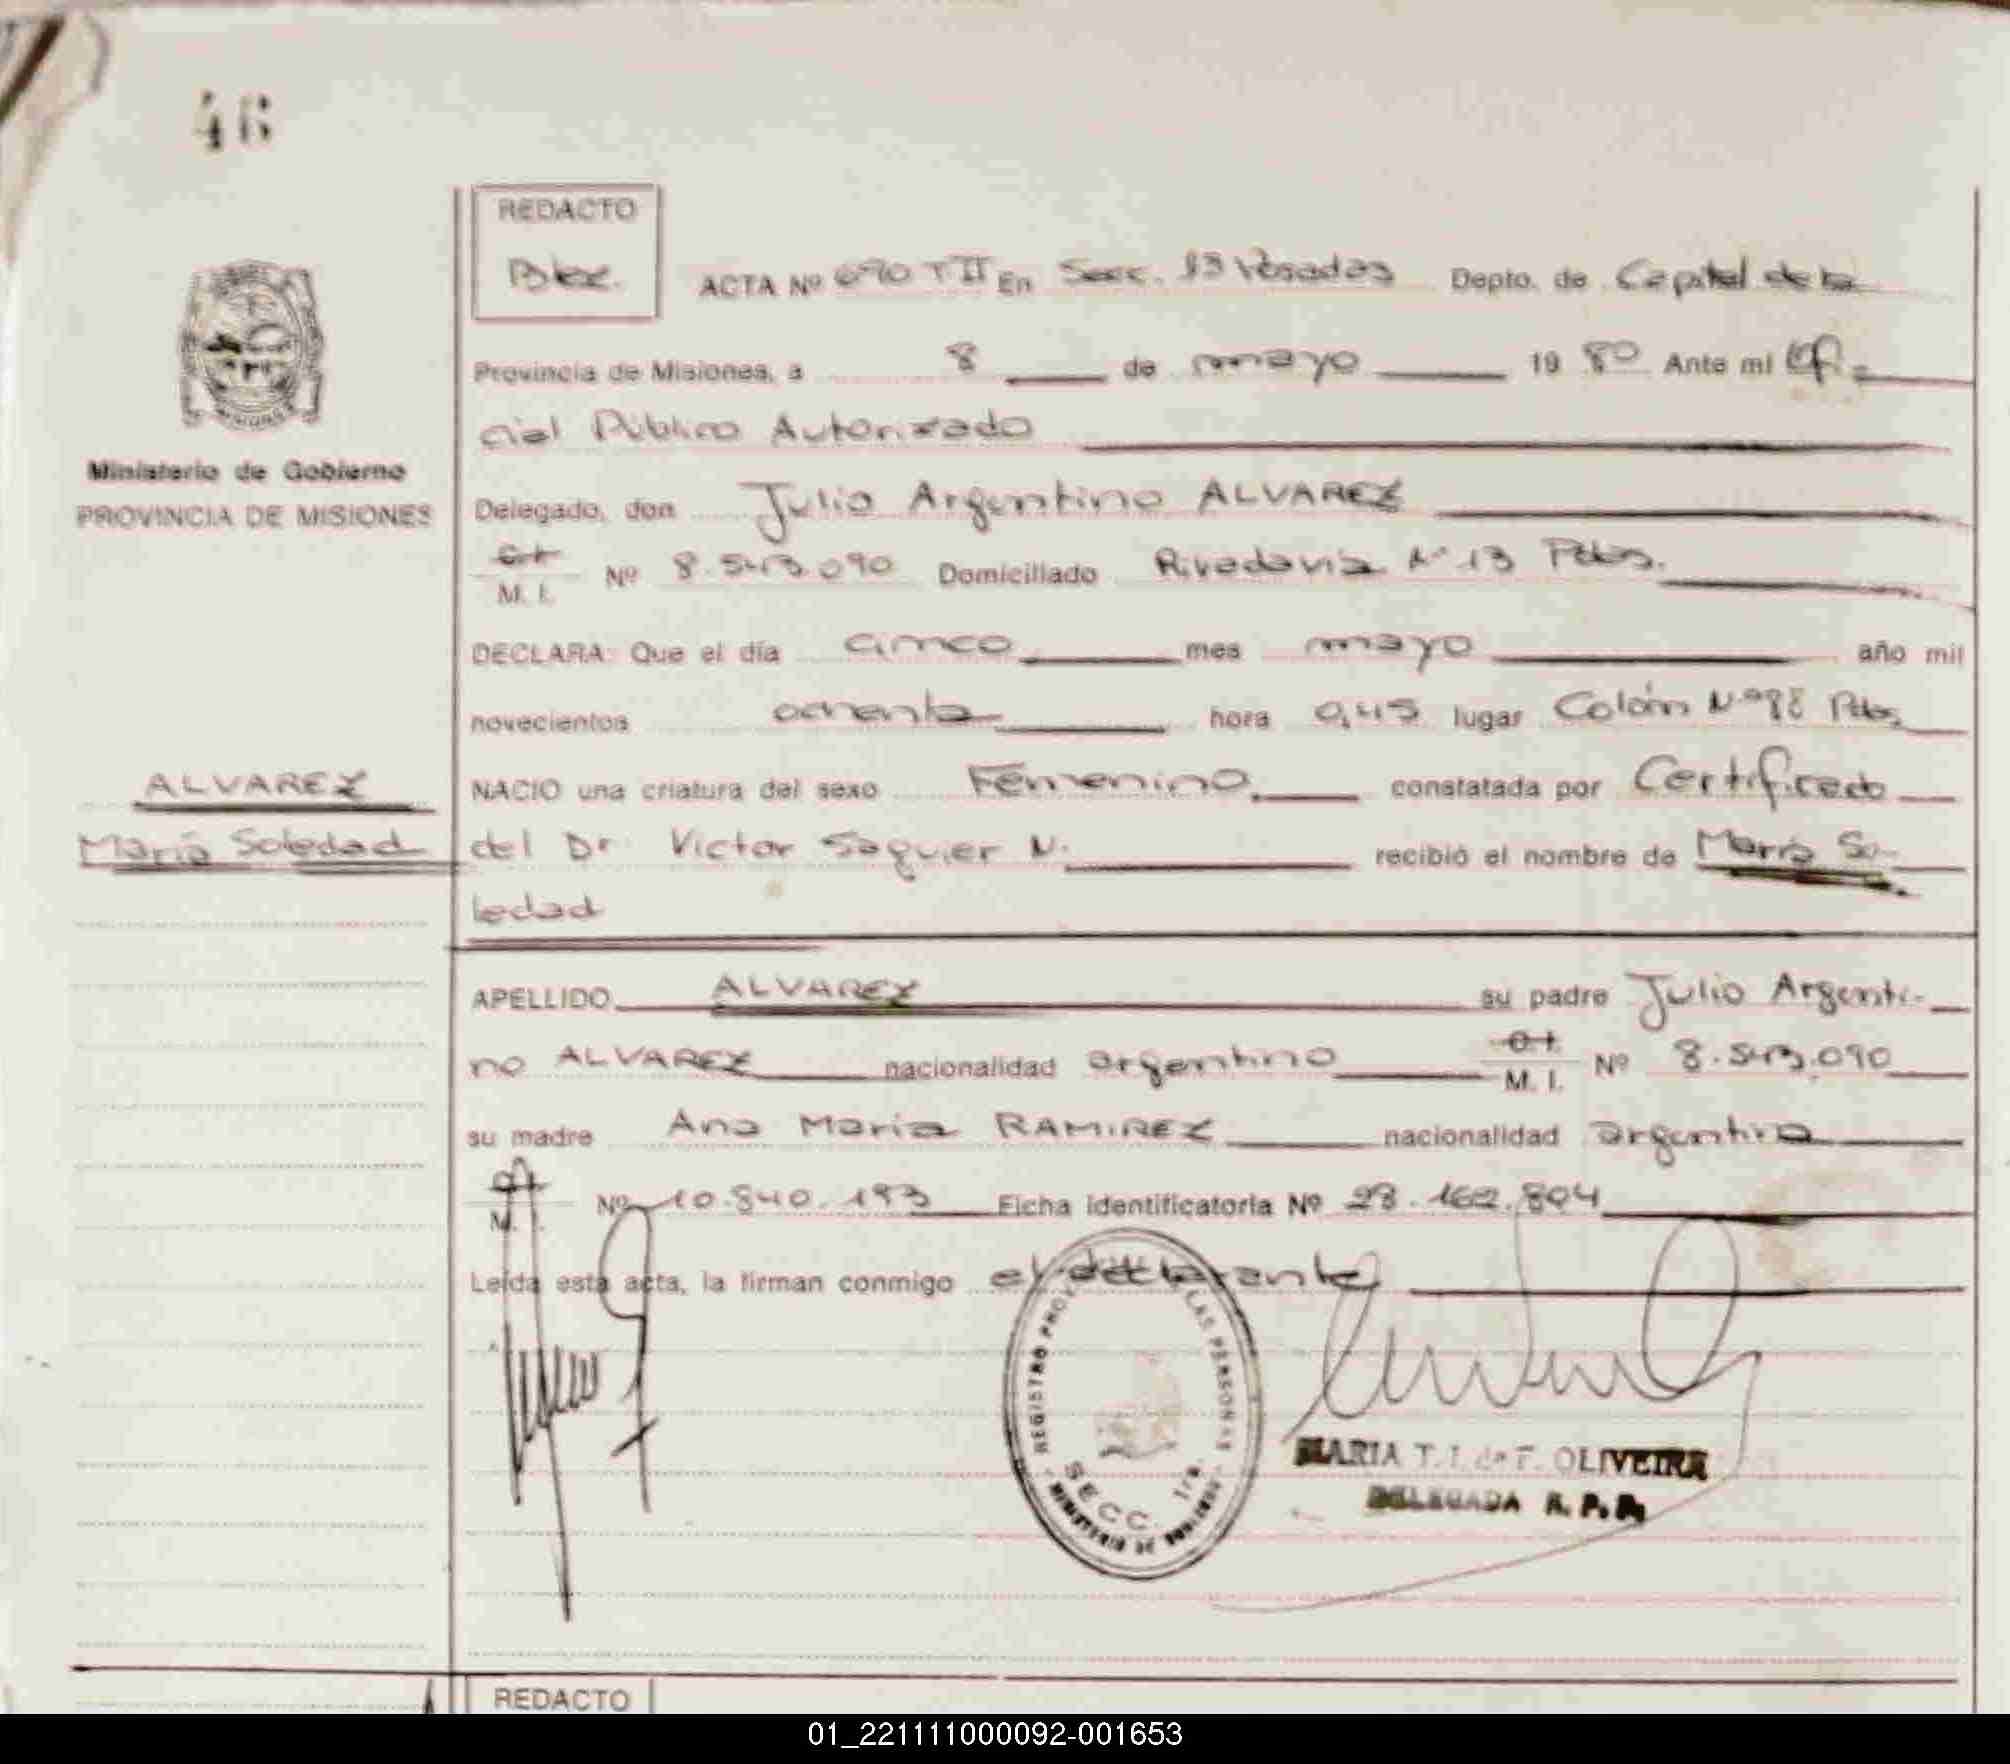 46
REDACTO
ACTA Nº 690 T II En Secc. 1ª Posadas Depto. de Capital de la
Provincia de Misiones, a 8 de mayo 19 80 Ante mi Ofi-
cial Público Autorizado
Ministerio de Gobierno
PROVINCIA DE MISIONES
Delegado, don Julio Argentino ALVAREZ
M. I. Nº 8.543.090 Domiciliado Rivadavia Nº 13 Pdas.
DECLARA: Que el día cinco mes mayo año mil
novecientos ochenta hora 0,45 lugar Colón Nº 98 Pdas,
ALVAREZ
María Soledad
NACIO una criatura del sexo Femenino, constatada por Certificado
del Dr. Victor Saguier N. recibió el nombre de María So-
ledad
APELLIDO ALVAREZ su padre Julio Argenti-
no ALVAREZ nacionalidad argentino M. I. Nº 8.543.090
su madre Ana María RAMIREZ nacionalidad argentina
M. I. Nº 10.840.193 Ficha identificatoria Nº 28.162.804
Leída esta acta, la firman conmigo el declarante
REGISTRO PROV. LAS PERSONAS
SECC. 1ra.
MINISTERIO DE GOBIERNO
MARIA T. I. de F. OLIVEIRA
DELEGADA R. P. P.
REDACTO
01_221111000092-001653